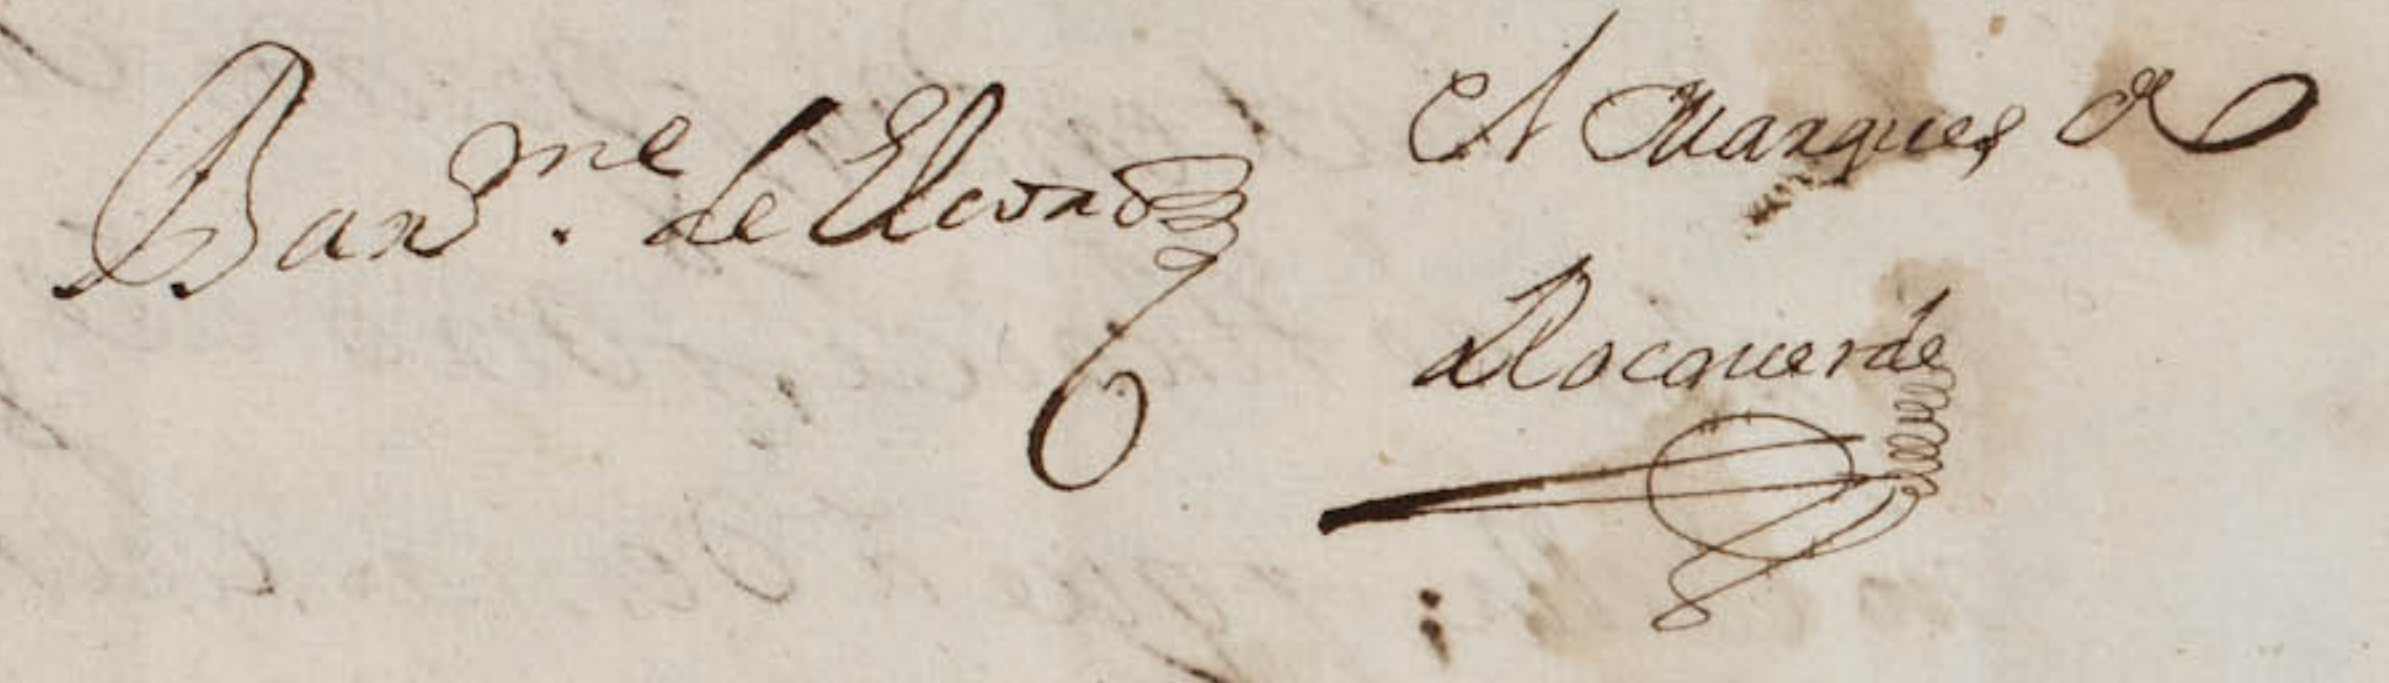 Barme. de Elcorø
el Marques de
Rocaverde